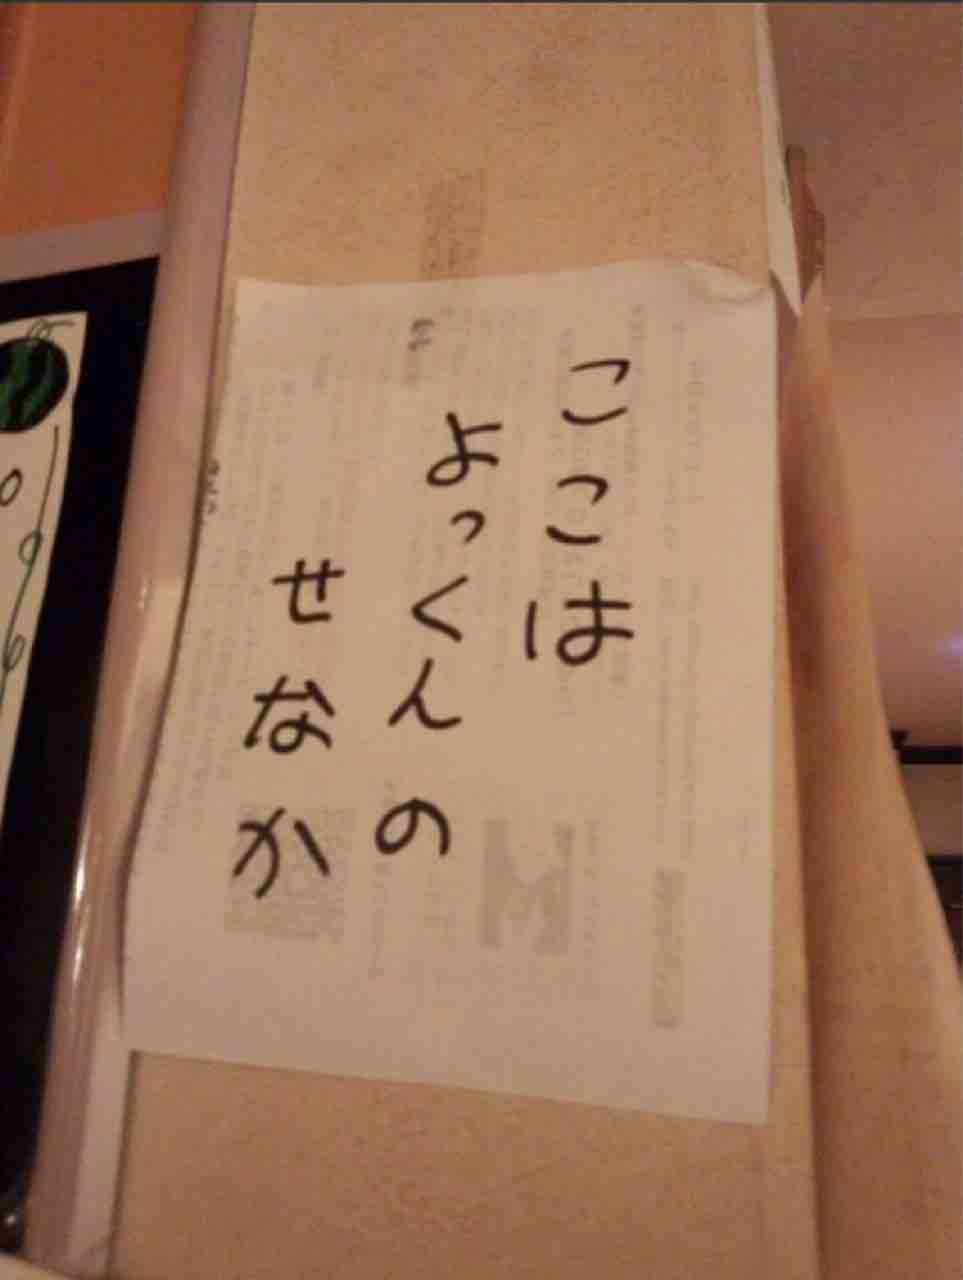 ここは
よっくんの
せなか